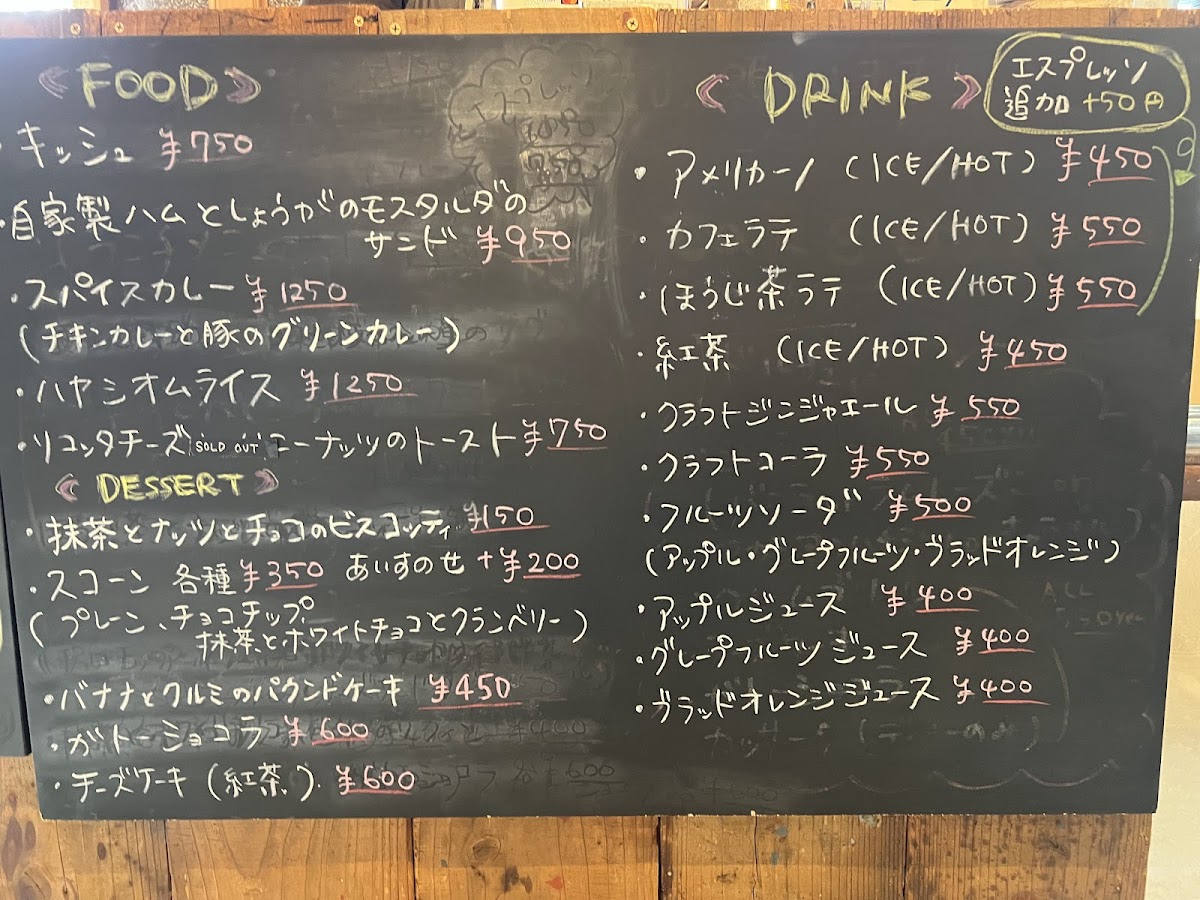 《FOOD》
・キッシュ ¥750
・自家製ハムとしょうがのモスタルダの
サンド ¥950
・スパイスカレー ¥1250
(チキンカレーと豚のグリーンカレー)
・ハヤシオムライス ¥1250
・リコッタチーズ SOLD OUT ニーナッツのトースト ¥750
《DESSERT》
・抹茶とナッツとチョコのビスコッティ ¥150
・スコーン 各種 ¥350 あいすのせ +¥200
(プレーン、チョコチップ
抹茶とホワイトチョコとクランベリー)
・バナナとクルミのパウンドケーキ ¥450
・ガトーショコラ ¥600
・チーズケーキ (紅茶) ¥600
《DRINK》
エスプレッソ
追加 +50円
・アメリカーノ (ICE/HOT) ¥450
・カフェラテ (ICE/HOT) ¥550
・ほうじ茶ラテ (ICE/HOT) ¥550
・紅茶 (ICE/HOT) ¥450
・クラフトジンジャエール ¥550
・クラフトコーラ ¥550
・フルーツソーダ ¥500
(アップル・グレープフルーツ・ブラッドオレンジ)
・アップルジュース ¥400
・グレープフルーツジュース ¥400
・ブラッドオレンジジュース ¥400